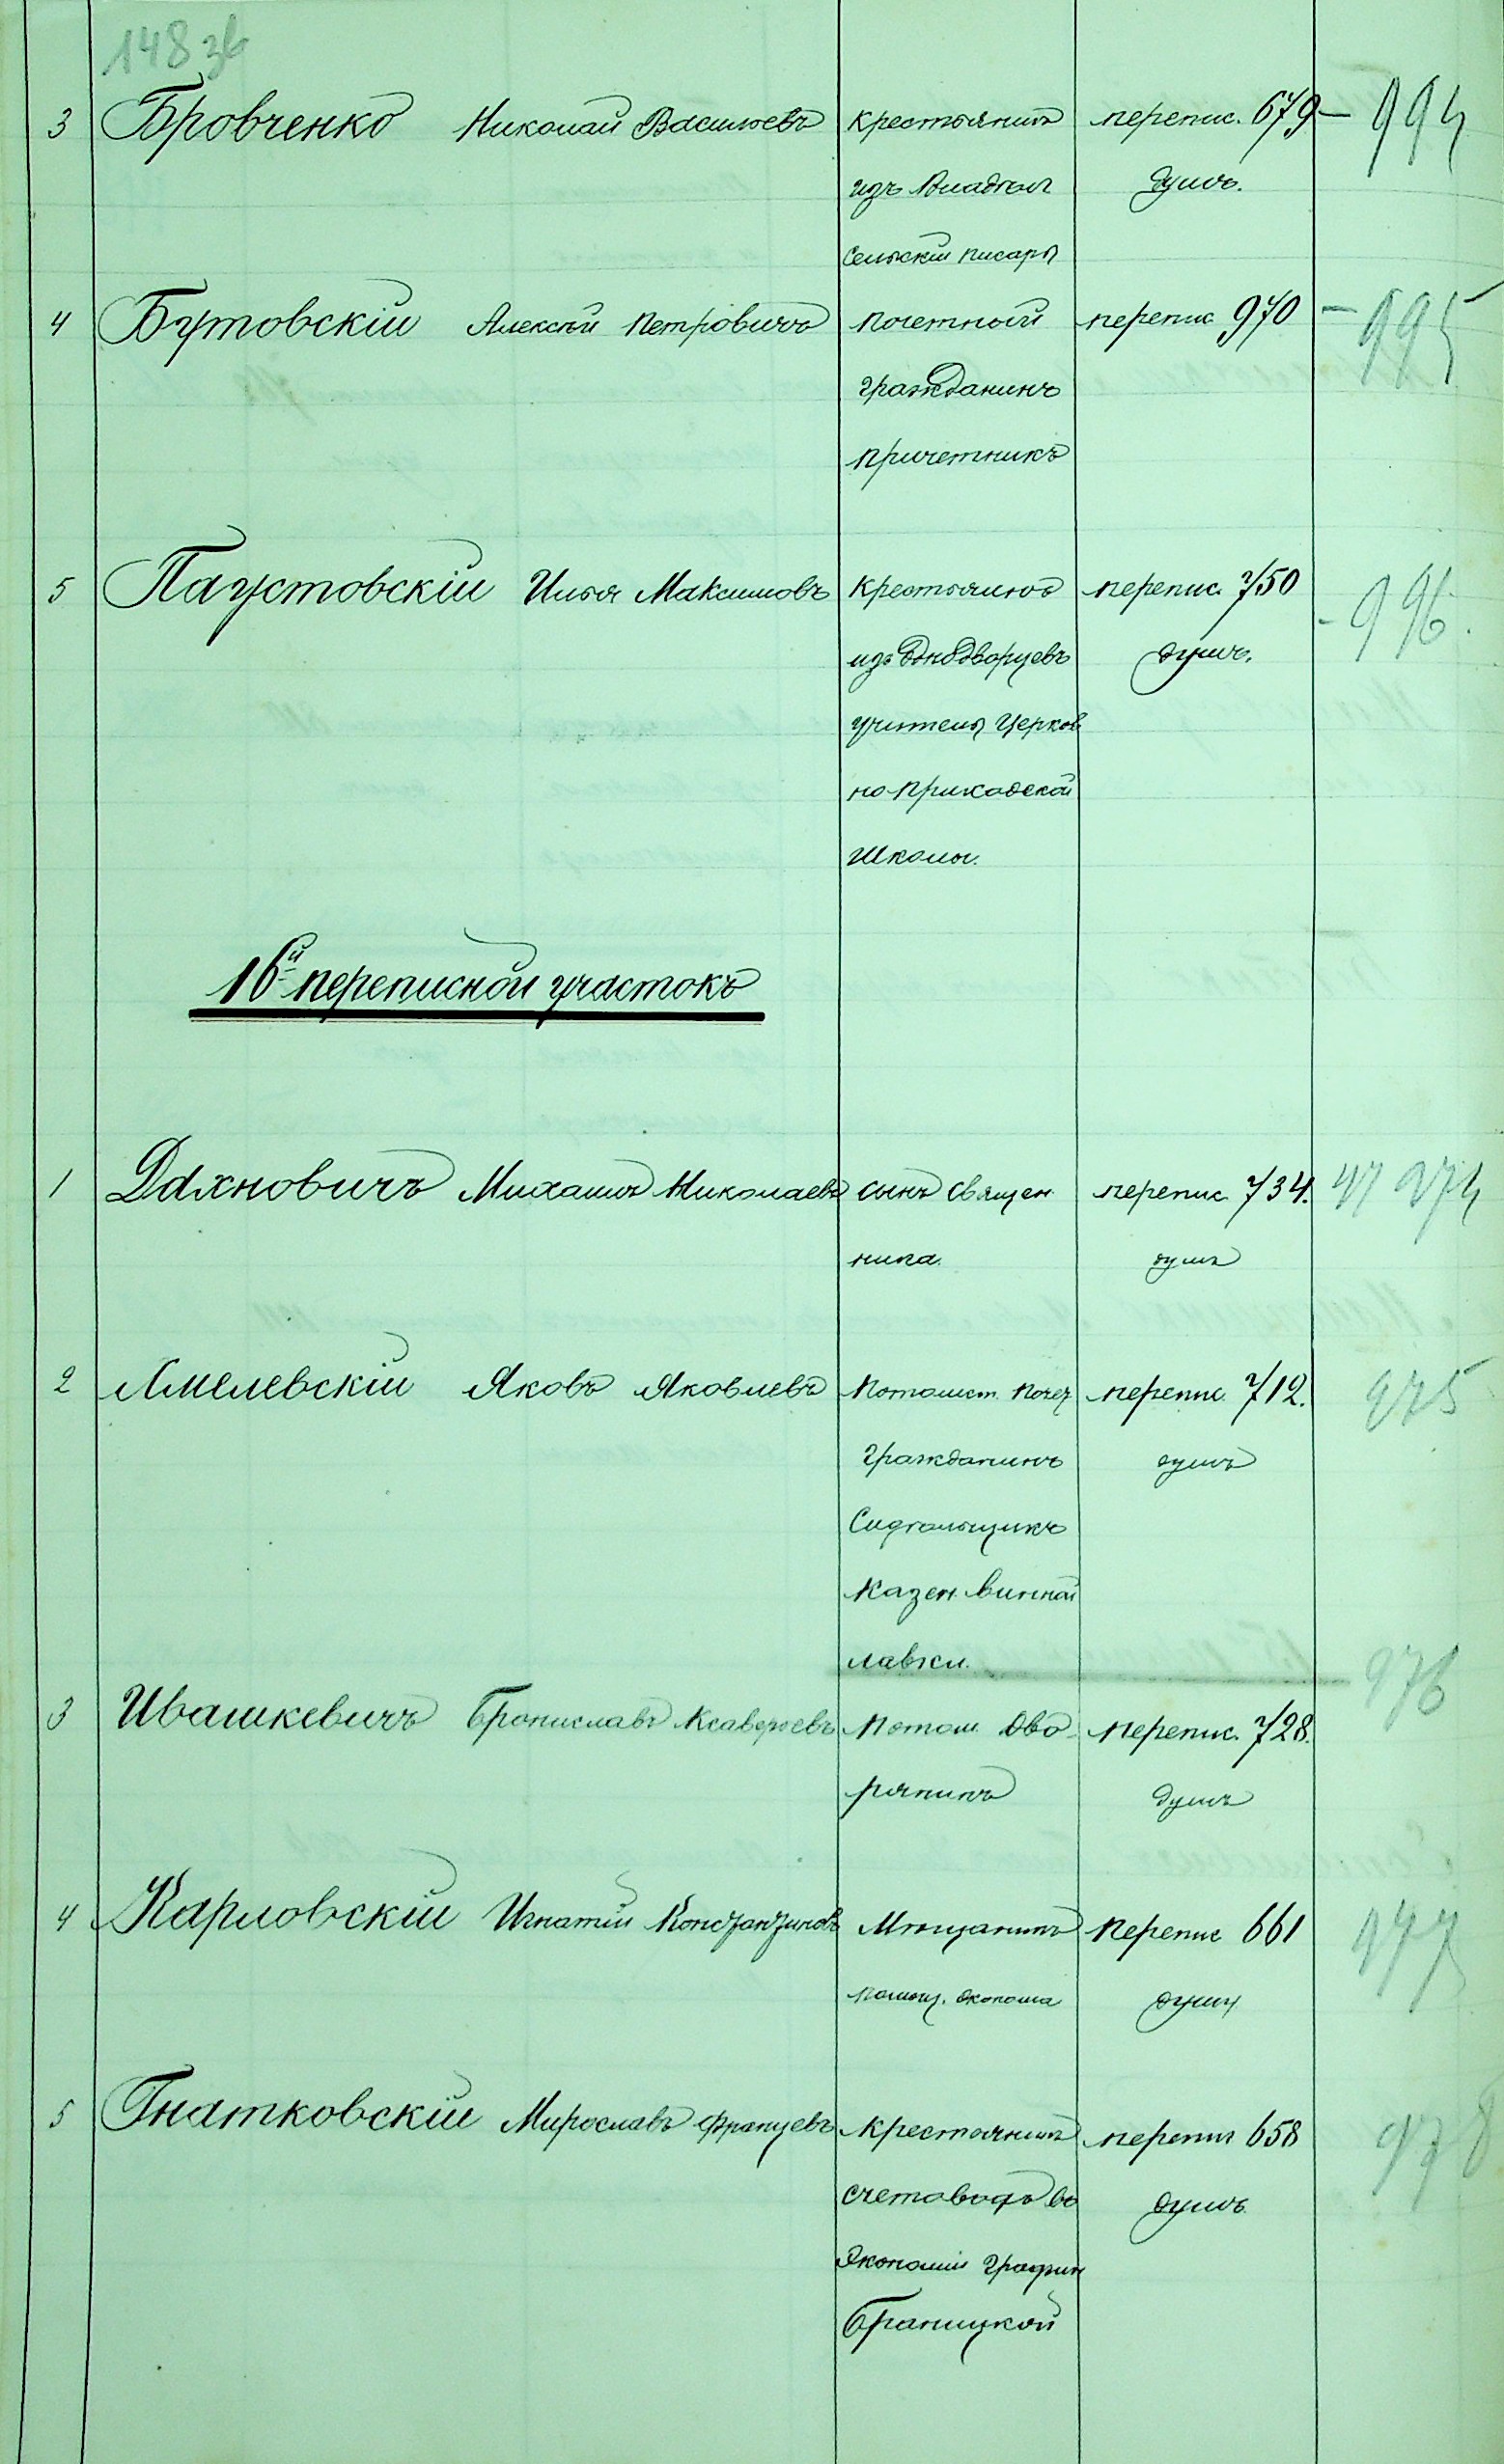 148 зв
3 Бровченко Николай Васильевъ крестьянинъ перепис. 679 – 994
изъ владѣл душъ.
сельскій писарь
4 Бутовскій Алексѣй Петровичъ почетный перепис 970 – 995
гражданинъ
причетникъ
5 Паустовскій Илья Максимовъ крестьянинъ перепис. 750 - 996.
изъ однодворцевъ душъ.
учитель церков
но-приходской
школы.
16й переписной участокъ
1 Дахновичъ Михаилъ Николаевъ сынъ священ перепис. 734. 47 974
ника. душъ
2 Хмелевскій Яковъ Яковлевъ потомст. почет перепис. 712. 975
гражданинъ душъ
Сидѣльщикъ
казен. винной
лавки.
3 Ивашкевичъ Брониславъ Ксаверьевъ потом. дво- перепис. 728. 976
рянинъ душъ
4 Карловскій Игнатій Константиновъ Мѣщанинъ перепис 661 977
помощ. эконома душу
5 Гнатковскій Мирославъ Францевъ крестьянинъ перепис 658 978
счетоводъ въ душъ
Экономіи графин
Браницкой